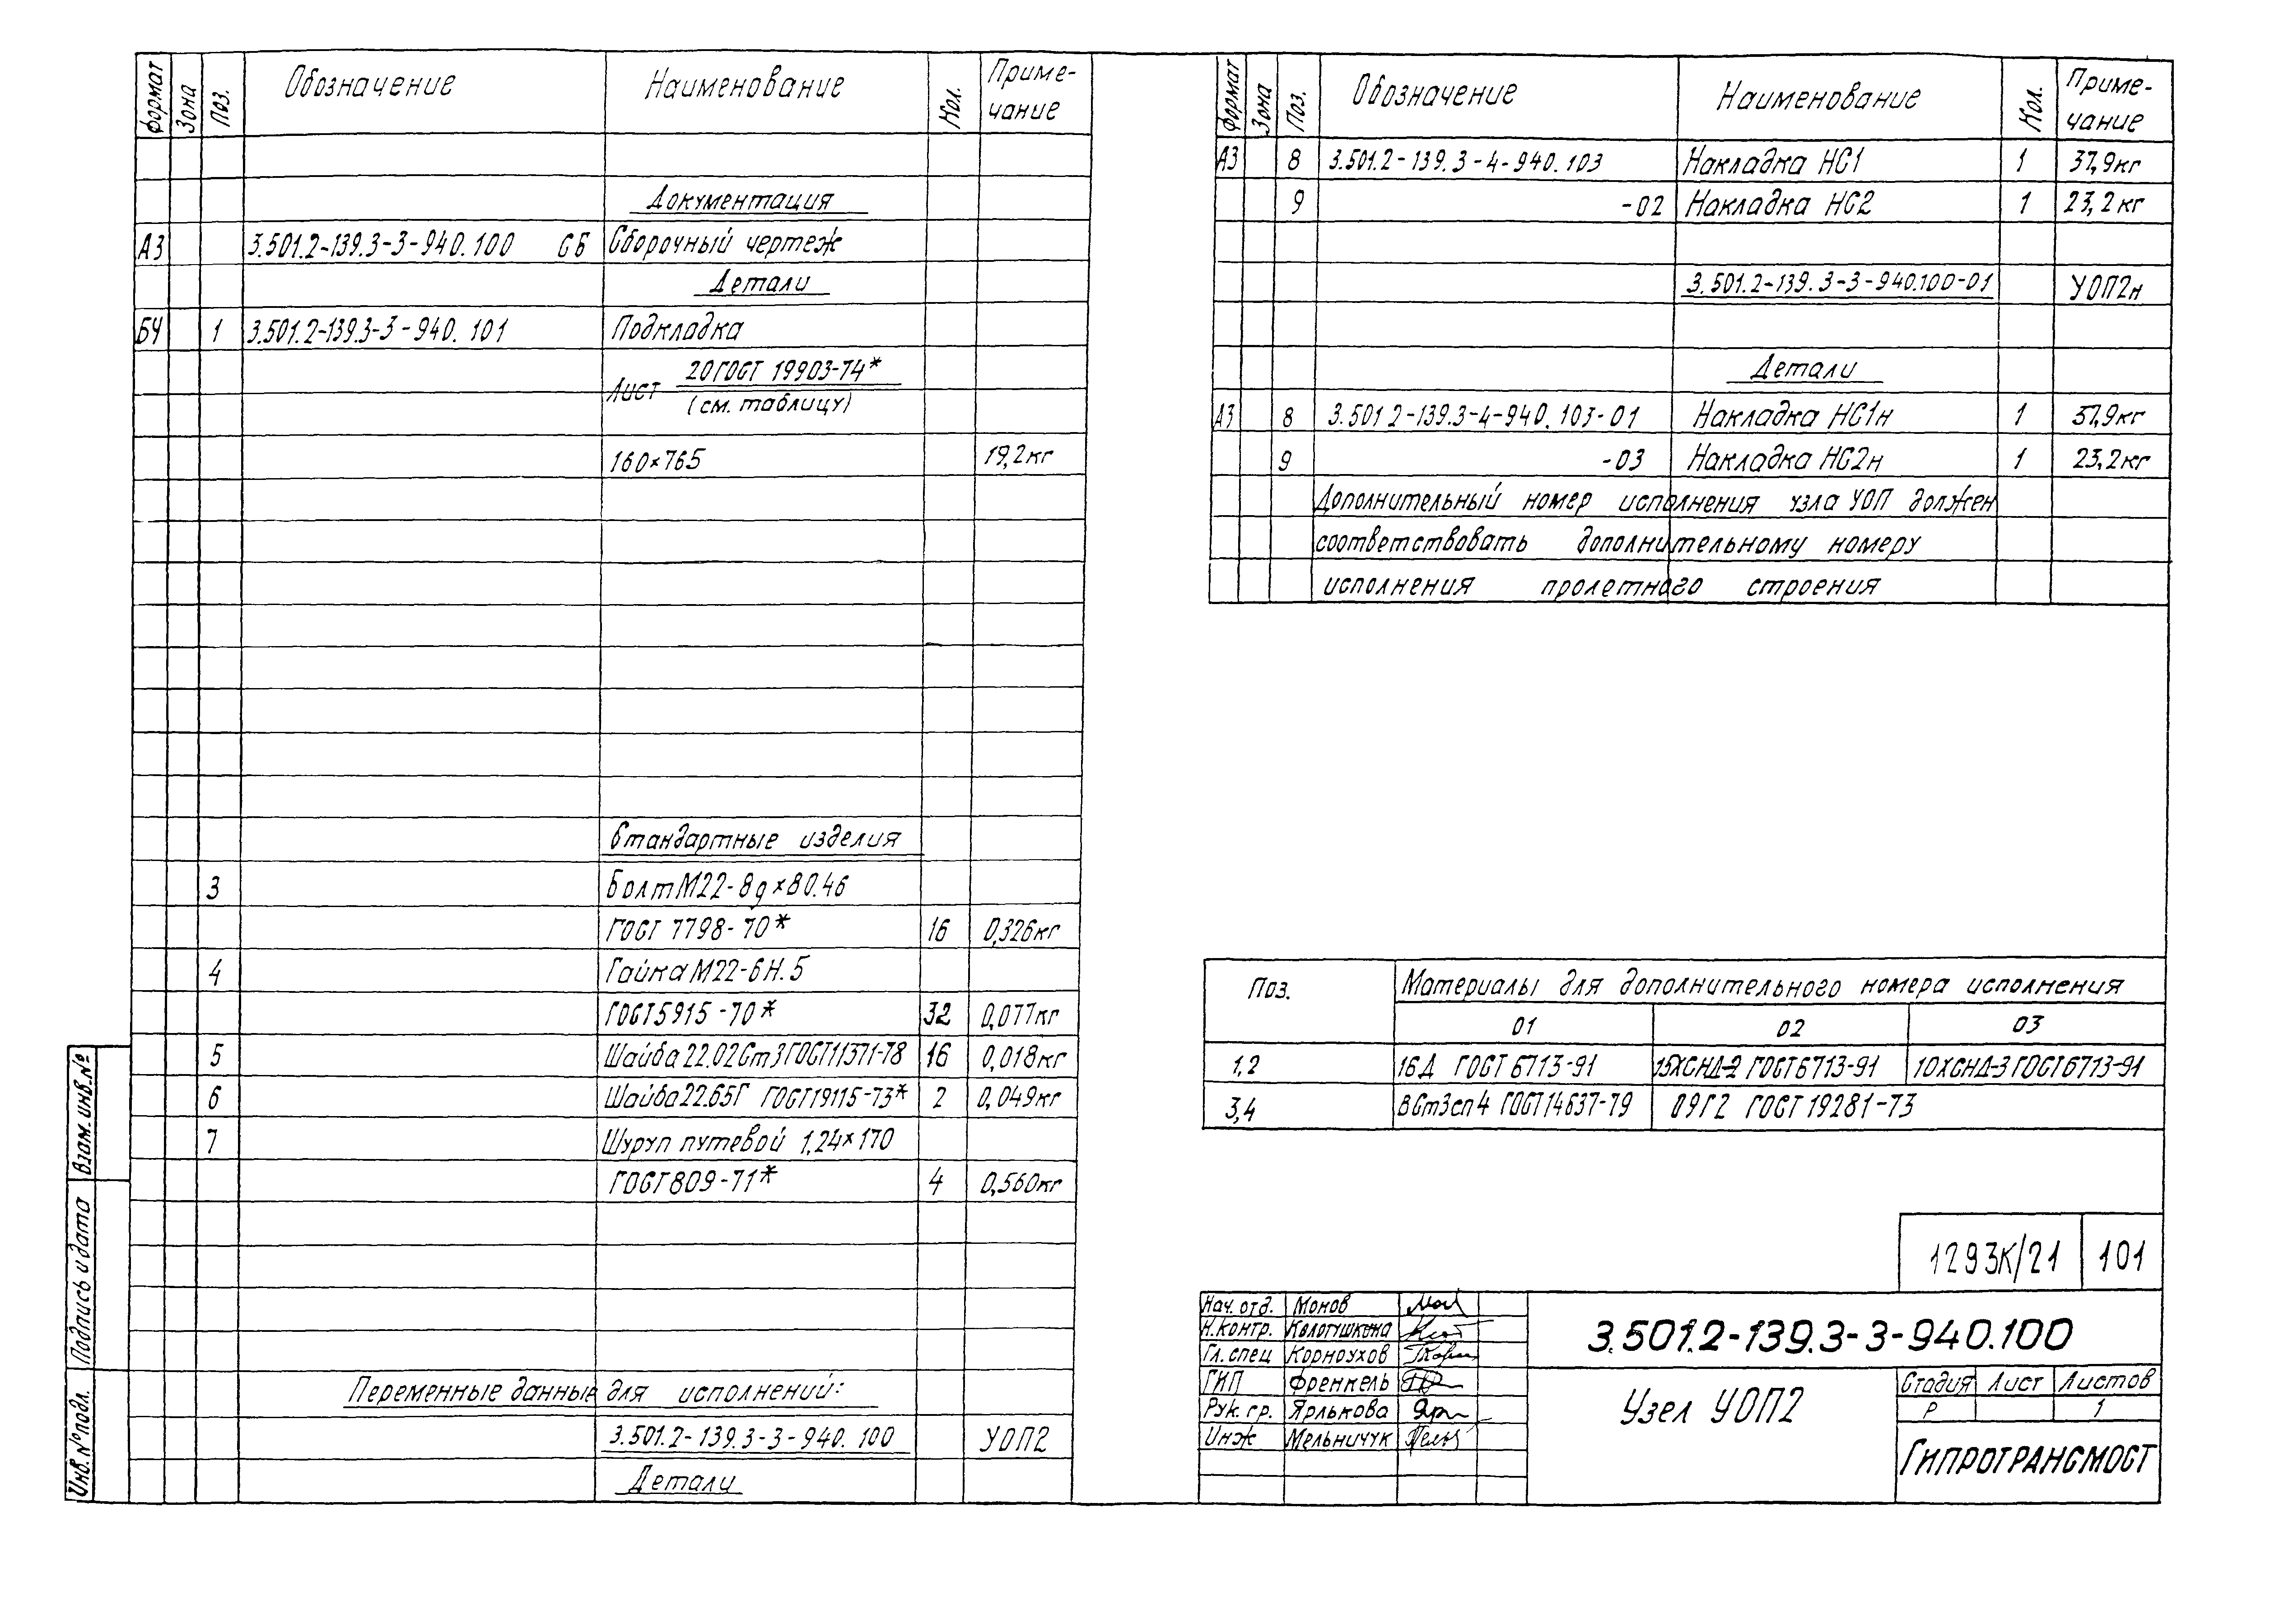 Формат Зона Поз. Обозначение Наименование Кол. Приме-
чание
Документация
А3 3.501.2-139.3-3-940.100 СБ Сборочный чертеж
Детали
БЧ 1 3.501.2-139.3-3-940.101 Подкладка
Лист 20 ГОСТ 19903-74*
(см. таблицу)
160×765 19,2кг
Стандартные изделия
3 Болт М22-8g×80.46
ГОСТ 7798-70* 16 0,326кг
4 Гайка М22-6Н.5
ГОСТ 5915-70* 32 0,077кг
5 Шайба 22.02Ст3 ГОСТ11371-78 16 0,018кг
6 Шайба 22.65Г ГОСТ19115-73* 2 0,049кг
7 Шуруп путевой 1.24×170
ГОСТ 809-71* 4 0,560кг
Переменные данные для исполнений:
3.501.2-139.3-3-940.100 УОП2
Детали
Формат Зона Поз. Обозначение Наименование Кол. Приме-
чание
А3 8 3.501.2-139.3-4-940.103 Накладка НС1 1 37,9кг
9 -02 Накладка НС2 1 23,2кг
3.501.2-139.3-3-940.100-01 УОП2н
Детали
А3 8 3.501 2-139.3-4-940.103-01 Накладка НС1н 1 37,9кг
9 -03 Накладка НС2н 1 23,2кг
Дополнительный номер исполнения узла УОП должен
соответствовать дополнительному номеру
исполнения пролетного строения
Поз. Материалы для дополнительного номера исполнения
01 02 03
1,2 16Д ГОСТ 6713-91 15ХСНД-2 ГОСТ6713-91 10ХСНД-3 ГОСТ6713-91
3,4 ВСт3сп4 ГОСТ14637-79 09Г2 ГОСТ 19281-73
1293К/21 101
Нач. отд. Монов
Н.контр.
Гл. спец Корноухов
ГИП Френкель
Рук. гр. Ярлькова
Инж Мельничук
3.501.2-139.3-3-940.100
Узел УОП2
Стадия Лист Листов
Р 1
ГИПРОТРАНСМОСТ
Взам. инв. №
Подпись и дата
Инв. № подл.